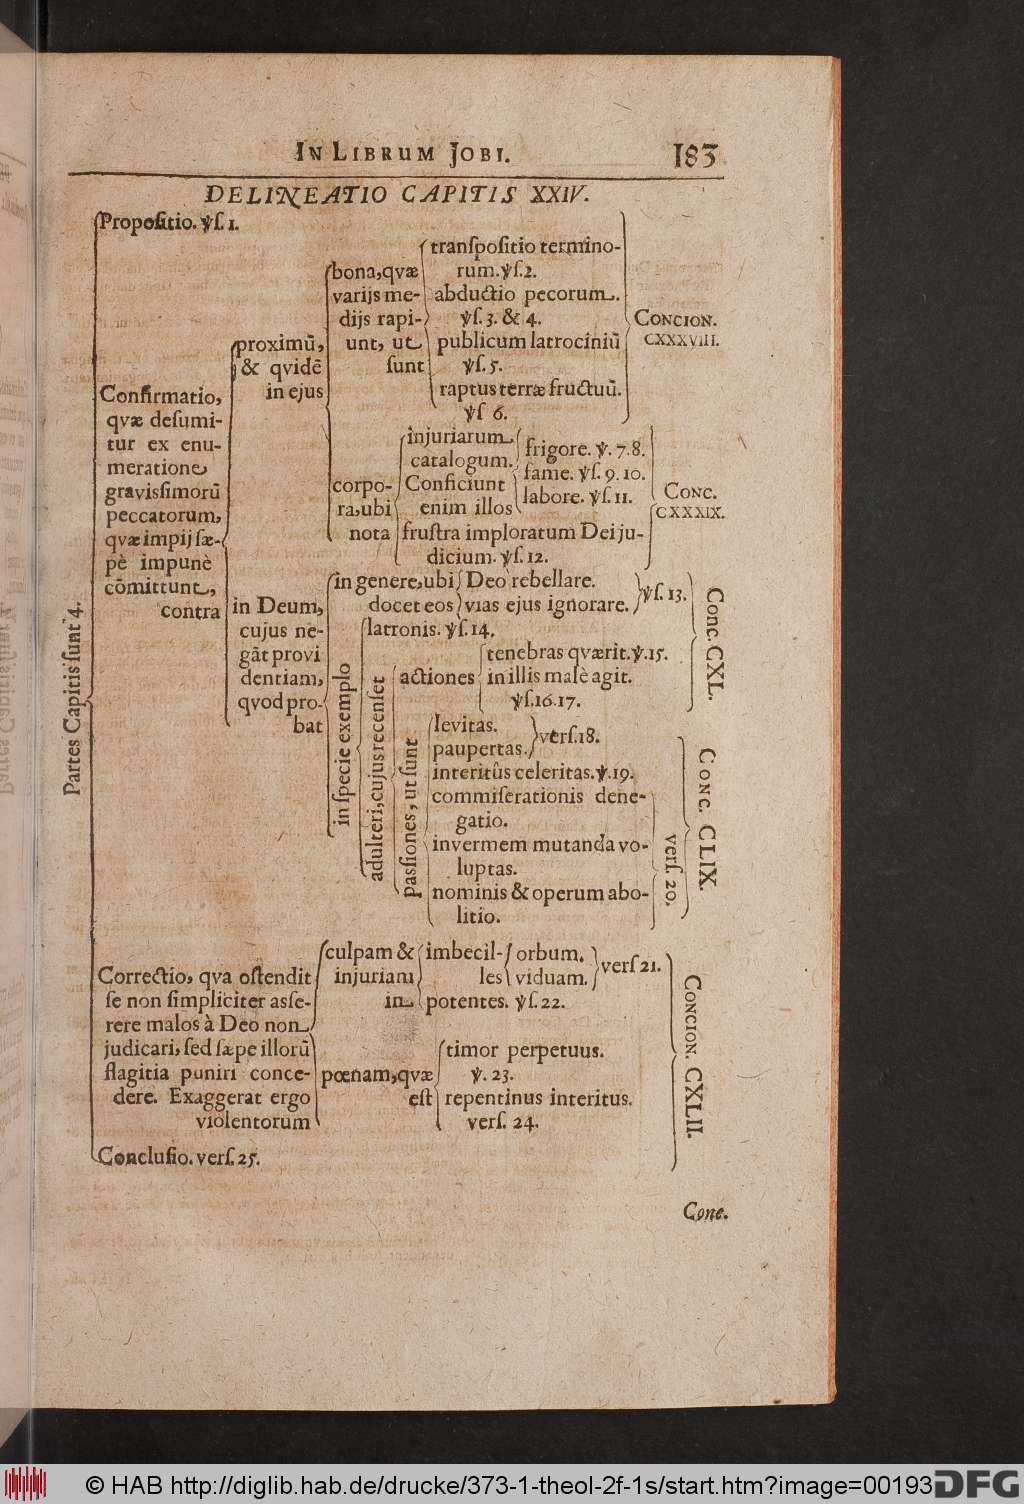 IN LIBRUM JOBI. 183
DELINEATIO CAPITIS XXIV.
Partes Capitis sunt 4.
Propositio. ℣s. 1.
Confirmatio,
qvæ desumi-
tur ex enu-
meratione
gravissimorũ
peccatorum,
qvæ impij sæ-
pè impunè
cõmittunt,
contra
proximũ,
& qvidẽ
in ejus
bona, qvæ
varijs me-
dijs rapi-
unt, ut
sunt
transpositio termino-
rum. ℣s. 2.
abductio pecorum.
℣s. 3. & 4.
publicum latrociniũ
℣s. 5.
raptus terræ fructuũ.
℣s 6.
CONCION.
CXXXVIII.
corpo-
ra, ubi
nota
injuriarum
catalogum.
Conficiunt
enim illos
frigore. ℣. 7. 8.
fame. ℣s. 9. 10.
labore. ℣s. 11.
frustra imploratum Dei ju-
dicium. ℣s. 12.
CONC.
CXXXIX.
in Deum,
cujus ne-
gãt provi
dentiam,
qvod pro-
bat
in genere, ubi
docet eos
Deo rebellare.
vias ejus ignorare.
℣s. 13.
in specie exemplo
latronis. ℣s. 14.
adulteri, cujus recenset
actiones
tenebras qværit. ℣. 15.
in illis malè agit.
℣s. 16. 17.
Conc. CXL.
passiones, ut sunt
levitas.
paupertas.
vers. 18.
interitûs celeritas. ℣. 19.
commiserationis dene-
gatio.
invermem mutanda vo-
luptas.
nominis & operum abo-
litio.
vers. 20.
CONC. CLIX.
Correctio, qva ostendit
se non simpliciter asse-
rere malos à Deo non
judicari, sed sæpe illorũ
flagitia puniri conce-
dere. Exaggerat ergo
violentorum
culpam &
injuriam
in
imbecil-
les
orbum.
viduam.
vers 21.
potentes. ℣s. 22.
pœnam, qvæ
est
timor perpetuus.
℣. 23.
repentinus interitus.
vers. 24.
CONCION. CXLII.
Conclusio. vers. 25.
Conc.
© HAB http://diglib.hab.de/drucke/373-1-theol-2f-1s/start.htm?image=00193
DFG